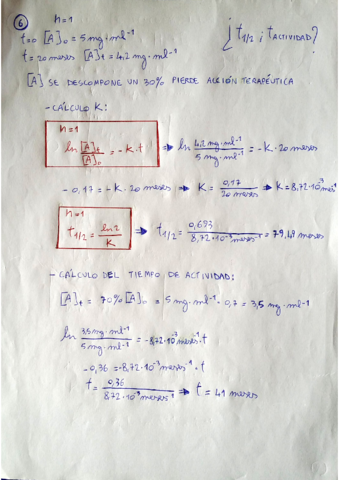 ⑥ n=1
t=0 [A]₀ = 5 mg·ml⁻¹ ¿ t₁/₂ ; t ACTIVIDAD?
t = 20 meses [A]t = 4,2 mg·ml⁻¹
[A] SE DESCOMPONE UN 30% PIERDE ACCIÓN TERAPÉUTICA
- CÁLCULO K:
n=1
ln [A]t/[A]₀ = -K·t ⇒ ln 4,2 mg·ml⁻¹/5 mg·ml⁻¹ = -K·20 meses
-0,17 = -K·20 meses ⇒ K = 0,17/20 meses ⇒ K = 8,72·10⁻³ meses⁻¹
n=1
t₁/₂ = ln2/K ⇒ t₁/₂ = 0,693/8,72·10⁻³ meses⁻¹ = 79,49 meses
- CÁLCULO DEL TIEMPO DE ACTIVIDAD:
[A]t = 70% [A]₀ = 5 mg·ml⁻¹·0,7 = 3,5 mg·ml⁻¹
ln 3,5 mg·ml⁻¹/5 mg·ml⁻¹ = -8,72·10⁻³ meses⁻¹·t
-0,36 = -8,72·10⁻³ meses⁻¹·t
t = 0,36/8,72·10⁻³ meses⁻¹ ⇒ t = 41 meses